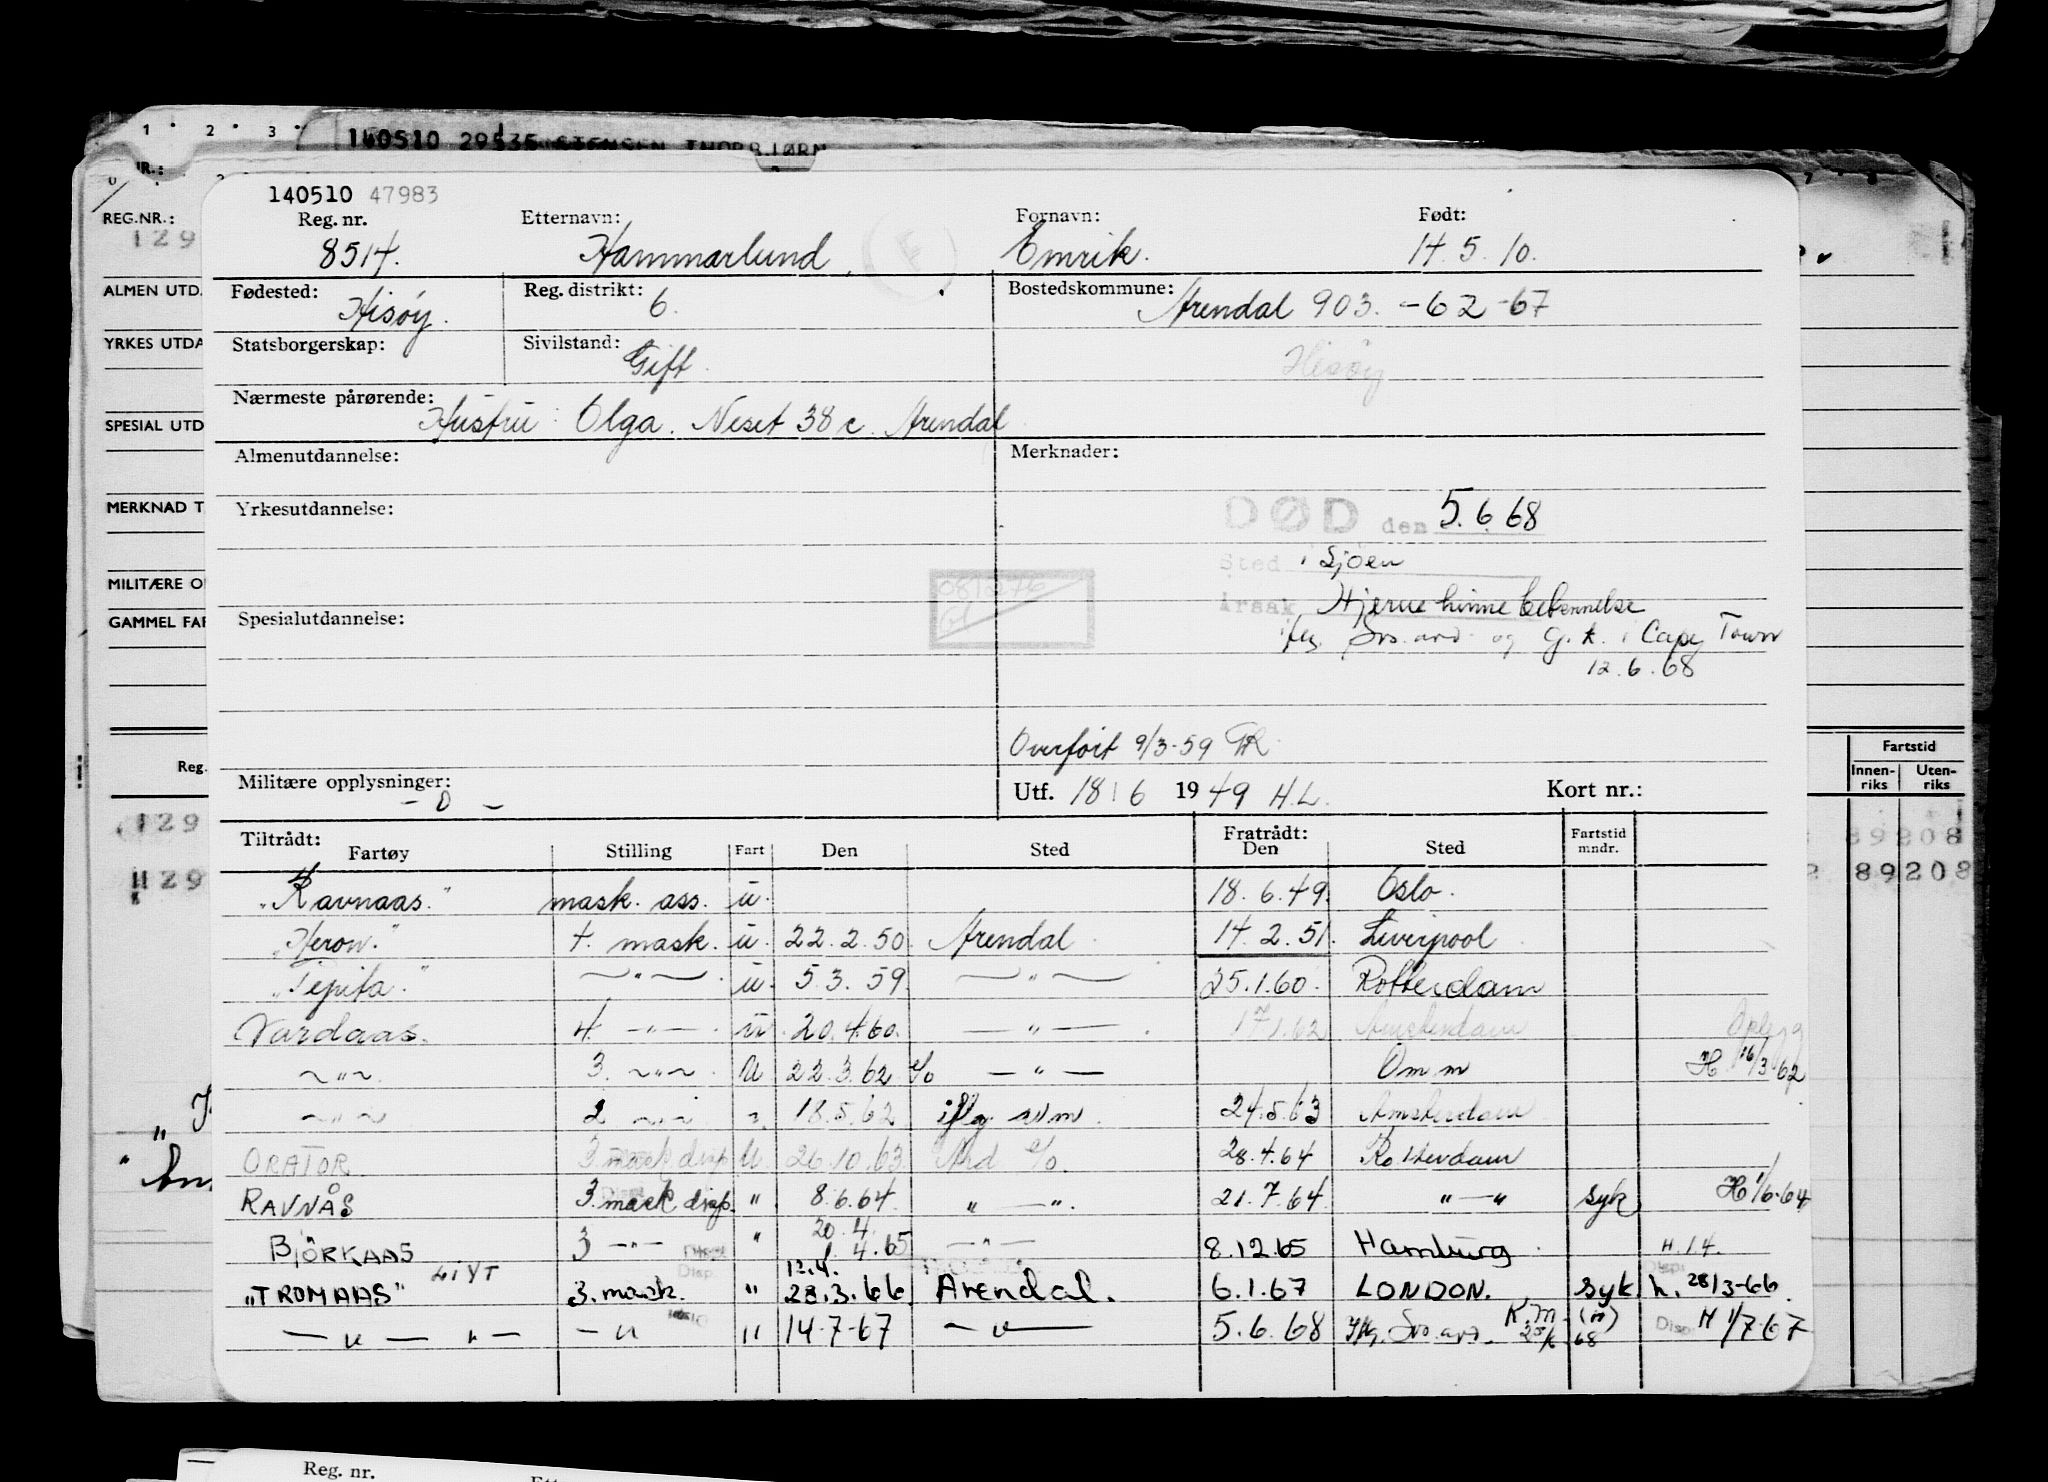 1 2 3
140510 29535 STENSEN THORBJØRN
NR.:
REG.NR.:
129
ALMEN UTD.
YRKES UTDA
SPESIAL UTD
MERKNAD T
MILITÆRE O
GAMMEL FAR
Reg.
129
129
Fartstid
Innen- Uten-
riks riks
89208
89208
140510 47983
Reg. nr. Etternavn: Fornavn: Født:
8514. Hammarlund Emrik. 14. 5. 10.
Fødested: Reg. distrikt: Bostedskommune:
Hisøy. 6. Arendal 903. -62 -67
Statsborgerskap: Sivilstand: Gift Hisøy
Nærmeste pårørende:
Hustru: Olga. Neset 38 c. Arendal
Almenutdannelse: Merknader:
Yrkesutdannelse: DØD den 5.6.68
Sted i Sjøen
Årsak Hjernehinne
Spesialutdannelse: og i Cape Town
12.6.68
Overført 9/3-59
Militære opplysninger: Utf. 18/6 1949 H.L. Kort nr.:
- 0 -
Tiltrådt: Fratrådt: Fartstid
Fartøy Stilling Fart Den Sted Den Sted mndr.
"Ravnaas." mask. ass. u. 18. 6. 49. Oslo.
"Heron." 4. mask. u. 22. 2. 50. Arendal 14. 2. 51. Liverpool
"Pepita." — " — u. 5. 3. 59 — " — 25.1.60. Rotterdam
Vardaas. 4. — " — . u. 20.4.60. — " — . 17.1.62 Amsterdam
— " — 3. — " — . u 22.3.62 — " — Om.m H 16/3-62
— " — 2 — " — " 18.5.62 iflg 24.5.63 Amsterdam
ORATOR 3 mask disp U 26.10.63 28.4.64 Rotterdam
RAVNÅS 3. mask disp. " 8.6.64 " — ". 21.7.64 " — " syk H 1/6-64
20.4.
BJÖRKAAS 3 — " — " 1.4.65 — " — 8.12.65 Hamburg H. 1.4.
12.4.
"TROMAAS" 3. mask. " 28.3.66 Arendal. 6.1.67 LONDON. syk h. 28/3-66
— " — " — — " " 14-7-67 — " — 5.6.68 68 Disp. H 1/7-67
Reg. nr.